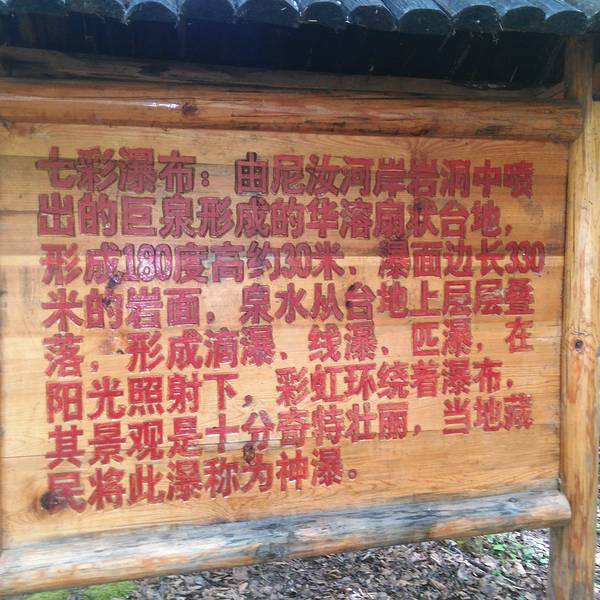 七彩瀑布：由尼汝河岸岩洞中喷
出的巨泉形成的华溶扇状台地，
形成180度高约30米、瀑面边长330
米的岩面，泉水从台地上层层叠
落，形成滴瀑、线瀑、匹瀑，在
阳光照射下，彩虹环绕着瀑布，
其景观是十分奇特壮丽，当地藏
民将此瀑称为神瀑。